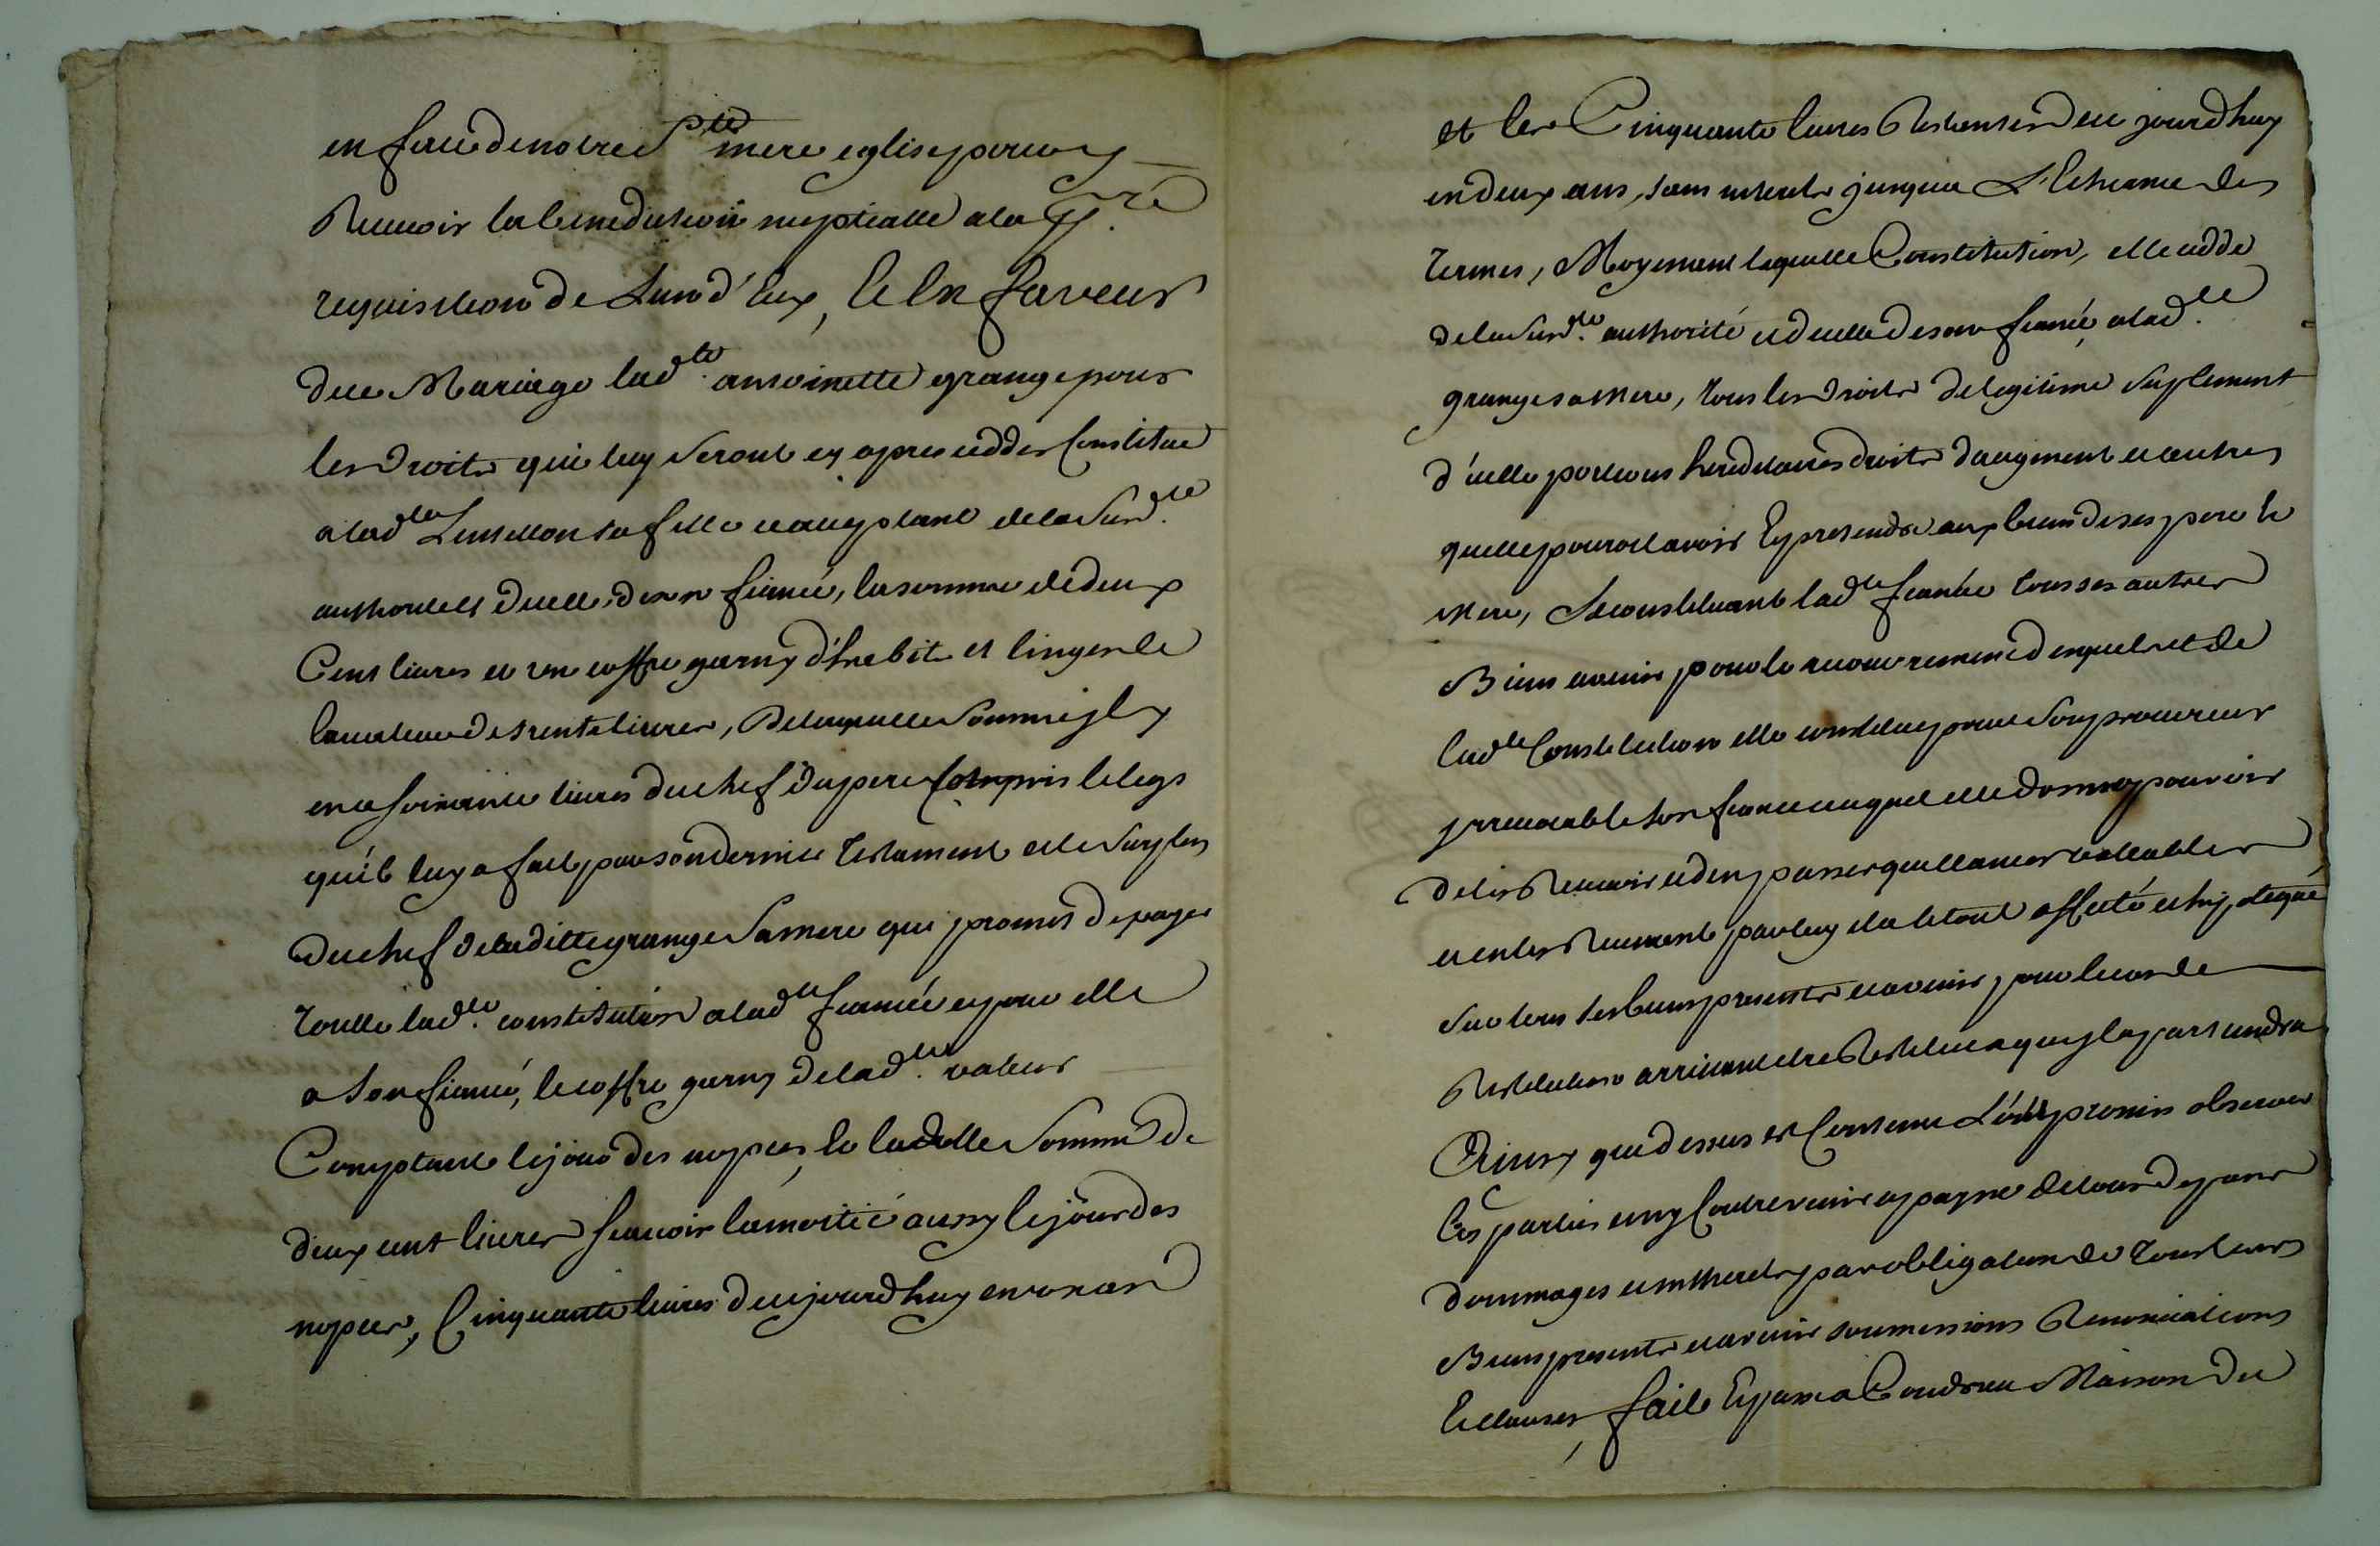 en face de notre Ste mere eglise pour y
Recevoir la benediction nuptialle a la pre
requisition de Lun d'Eux, Et En faveur
du Mariage lad.te antoinette grange pour
les Droits qui luy seront cy apres ceddes Constitue
a lad.te sa fille acceptant de la susd.te
authorité et de celle de son fiancé, la somme de deux
Cent livres et un coffre garny d'habits et linges de
la valleur de trente livres, de laquelle somme jl y
en a soixante livres du chef du pere Compris le legs
qu'il luy a fait par son dernier Testament et le surplus
du chef de laditte grange sa mere qui promet de payer
toutte lad.te constitution a lad.te fiancée et pour elle
a son fiancé, le coffre garny de lad.te valeur
Comptant le jour des nopces, Et laditte somme de
deux cent livres scavoir la moitié aussy le jour des
nopces, Cinquante livres du jourd'huy en un an
et les Cinquante livres Restantes du jourd'huy
en deux ans, sans interets jusques a L'Echeance des
termes, Moyenant laquelle Constitution, elle cedde
de la susd.te authorité et de celle de son fiancé, a lad.te
grange sa mere, tous les droits de legitime suplement
d'icelle portions hereditaires droits d'augment et autres
quelle pouroit avoir Et pretendre aux biens de ses pere Et
mere, Se constituant lad.te fiancée tous ses autres
Biens avenir pour le recouvrement desquels et de
lad.te Constitution elle constitue pour son procureur
jrrevocable son fiancé auquel elle donne pouvoir
de les Recevoir et d'en passer quittances vallables
et en les Recevant par luy il a le tout affecté et hypotequé
sur tous ses biens presents et avenir, pour le cas de
Restitution arrivant etre Restitué a qui jl appartiendra
Ainsy que dessus est Convenu L'ont promis observer
les parties et n'y Contrevenir a payne de tous depans
dommages et interets, par obligation de tous leurs
Biens presents et avenir soumissions Renonciations
Et clauses, fait Et passé a Condrieu Maison du